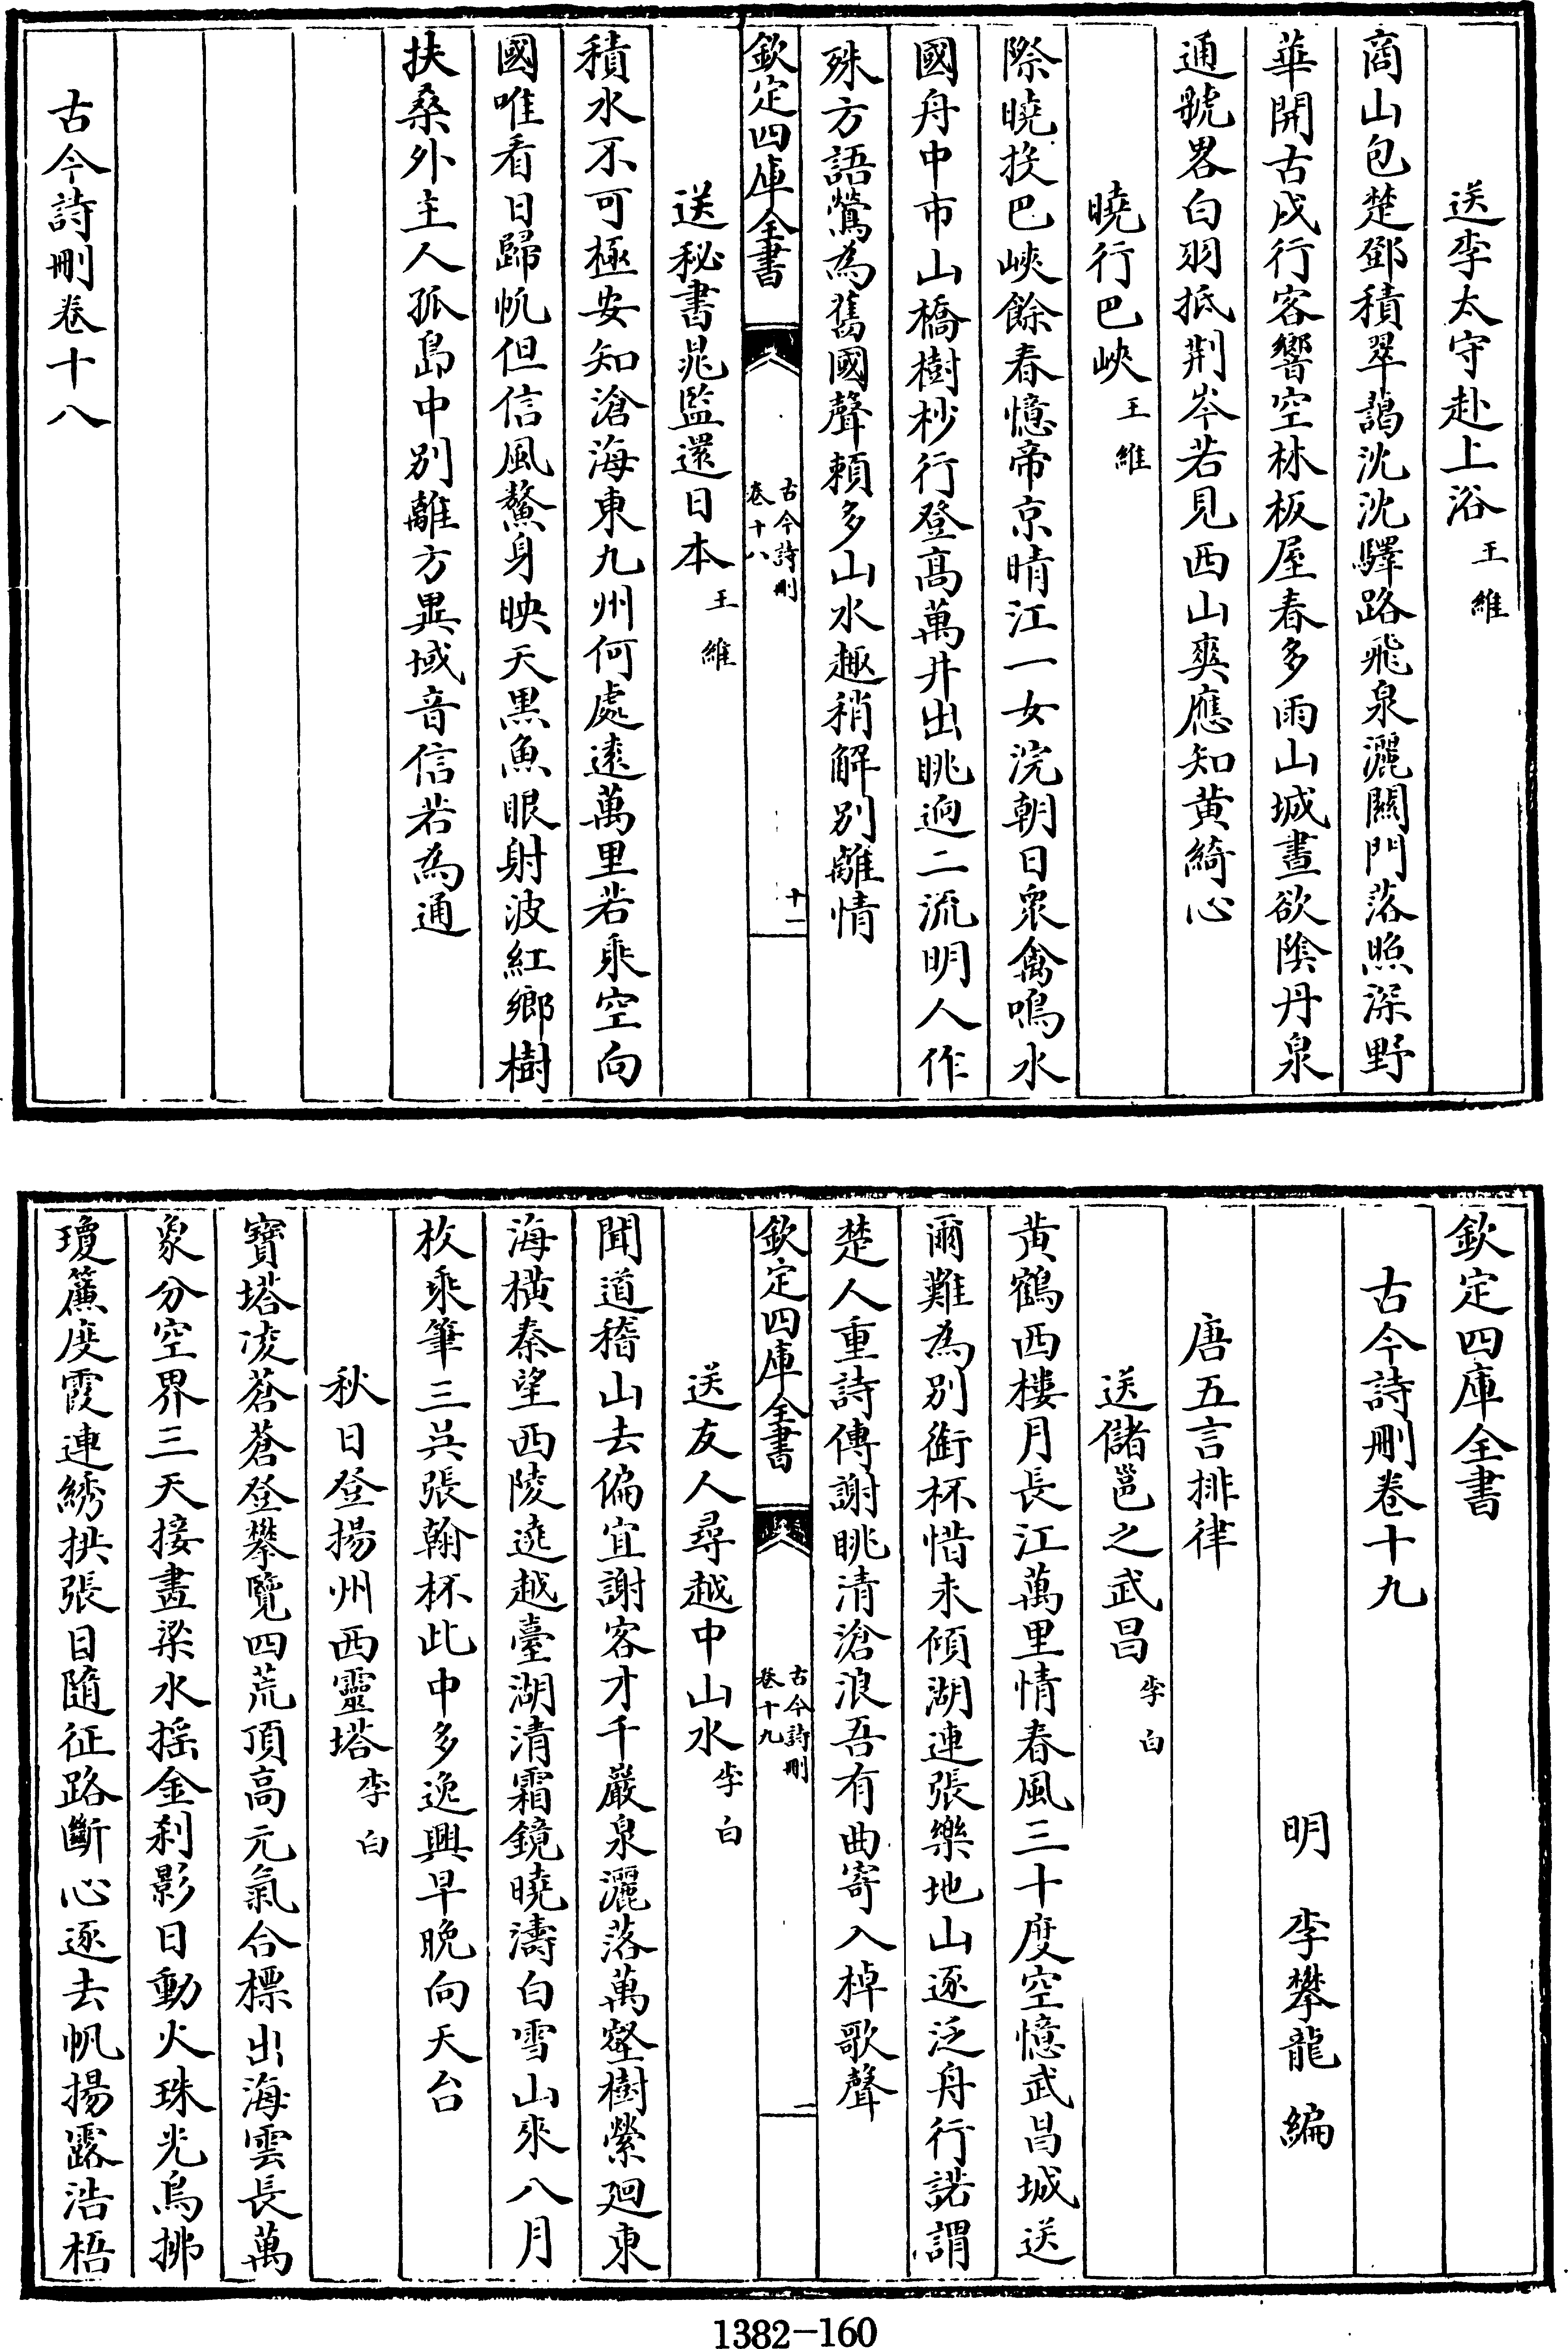 送李太守赴上洛王維
商山包楚鄧積翠藹沈沈驛路飛泉灑關門落照深野
華開古戍行客響空林板屋春多雨山城晝欲陰丹泉
通虢畧白羽抵荆岑若見西山爽應知黄綺心
曉行巴峽王維
際曉投巴峽餘春憶帝京晴江一女浣朝日衆禽鳴水
國舟中市山橋樹杪行登高萬井出眺逈二流明人作
殊方語鶯為舊國聲賴多山水趣稍解别離情
欽定四庫全書
古今詩刪
卷十八
十一
送秘書晁監還日本王維
積水不可極安知滄海東九州何處遠萬里若乗空向
國唯看日歸帆但信風鰲身映天黒魚眼射波紅鄉樹
扶桑外主人孤島中别離方異域音信若為通
古今詩刪卷十八
欽定四庫全書
古今詩刪卷十九
明 李攀龍 編
唐五言排律
送儲邕之武昌李白
黄鶴西樓月長江萬里情春風三十度空憶武昌城送
爾難為别銜杯惜未傾湖連張樂地山逐泛舟行諾謂
楚人重詩傳謝眺清滄浪吾有曲寄入棹歌聲
欽定四庫全書
古今詩刪
卷十九
一
送友人尋越中山水李白
聞道稽山去偏宜謝客才千巖泉灑落萬壑樹縈廻東
海横秦望西陵遶越臺湖清霜鏡曉濤白雪山來八月
枚乗筆三吳張翰杯此中多逸興早晚向天台
秋日登揚州西靈塔李白
寶塔凌蒼蒼登攀覽四荒頂高元氣合標出海雲長萬
象分空界三天接畫梁水揺金刹影日動火珠光鳥拂
瓊簾度霞連綉拱張目隨征路斷心逐去帆揚露浩梧
1382-160